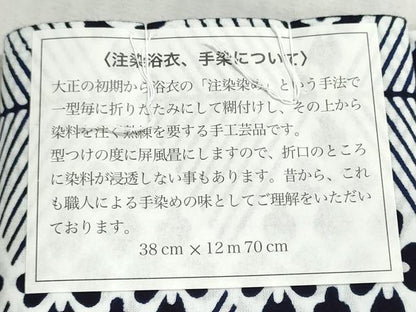 〈注染浴衣、手染について〉
大正の初期から浴衣の「注染染め」という手法で
一型毎に折りたたみにして糊付けし、その上から
染料を注ぐ熟練を要する手工芸品です。
型つけの度に屏風畳にしますので、折口のところ
に染料が浸透しない事もあります。昔から、これ
も職人による手染めの味としてご理解をいただい
ております。
38cm×12m70cm